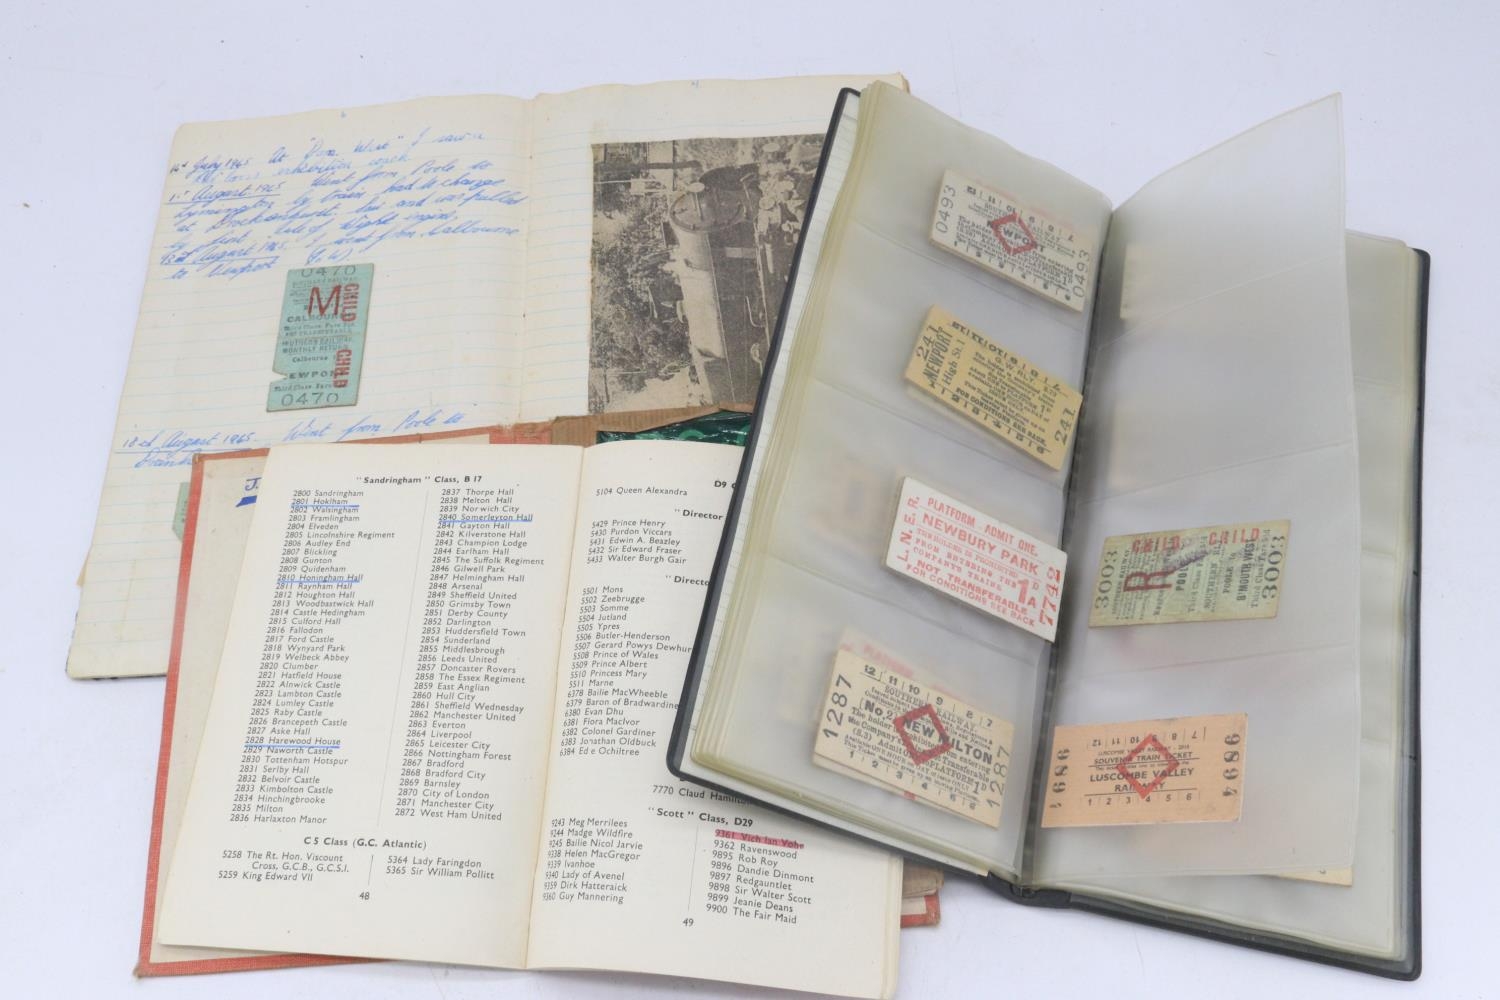 14th July 1965 At "Poole West" I saw a
exhibition coach
1st August 1965 Went from Poole to
Lymington by train had to change
at Brockenhurst,
by
2nd August 1965 I went from Calbourne
to Newport
0470
M
CHILD
CALBOURNE
Third Class
NOT TRANSFERABLE
SOUTHERN RAILWAY
MONTHLY RETURN
Calbourne
NEWPORT
Third Class
CHILD
0470
18th August 1965 Went from Poole to
"Sandringham" Class, B 17
2800 Sandringham
2801 Holkham
2802 Walsingham
2803 Framlingham
2804 Elveden
2805 Lincolnshire Regiment
2806 Audley End
2807 Blickling
2808 Gunton
2809 Quidenham
2810 Honingham Hall
2811 Raynham Hall
2812 Houghton Hall
2813 Woodbastwick Hall
2814 Castle Hedingham
2815 Culford Hall
2816 Fallodon
2817 Ford Castle
2818 Wynyard Park
2819 Welbeck Abbey
2820 Clumber
2821 Hatfield House
2822 Alnwick Castle
2823 Lambton Castle
2824 Lumley Castle
2825 Raby Castle
2826 Brancepeth Castle
2827 Aske Hall
2828 Harewood House
2829 Naworth Castle
2830 Tottenham Hotspur
2831 Serlby Hall
2832 Belvoir Castle
2833 Kimbolton Castle
2834 Hinchingbrooke
2835 Milton
2836 Harlaxton Manor
2837 Thorpe Hall
2838 Melton Hall
2839 Norwich City
2840 Somerleyton Hall
2841 Gayton Hall
2842 Kilverstone Hall
2843 Champion Lodge
2844 Earlham Hall
2845 The Suffolk Regiment
2846 Gilwell Park
2847 Helmingham Hall
2848 Arsenal
2849 Sheffield United
2850 Grimsby Town
2851 Derby County
2852 Darlington
2853 Huddersfield Town
2854 Sunderland
2855 Middlesbrough
2856 Leeds United
2857 Doncaster Rovers
2858 The Essex Regiment
2859 East Anglian
2860 Hull City
2861 Sheffield Wednesday
2862 Manchester United
2863 Everton
2864 Liverpool
2865 Leicester City
2866 Nottingham Forest
2867 Bradford
2868 Bradford City
2869 Barnsley
2870 City of London
2871 Manchester City
2872 West Ham United
C 5 Class (G.C. Atlantic)
5258 The Rt. Hon. Viscount
Cross, G.C.B., G.C.S.I.
5259 King Edward VII
5364 Lady Faringdon
5365 Sir William Pollitt
48
D9
5104 Queen Alexandra
"Director
5429 Prince Henry
5430 Purdon Viccars
5431 Edwin A. Beazley
5432 Sir Edward Fraser
5433 Walter Burgh Gair
"Director
5501 Mons
5502 Zeebrugge
5503 Somme
5504 Jutland
5505 Ypres
5506 Butler-Henderson
5507 Gerard Powys Dewhur
5508 Prince of Wales
5509 Prince Albert
5510 Princess Mary
5511 Marne
6378 Bailie MacWheeble
6379 Baron of Bradwardine
6380 Evan Dhu
6381 Flora MacIvor
6382 Colonel Gardiner
6383 Jonathan Oldbuck
6384 Edie Ochiltree
7770 Claud Hamilton
"Scott" Class, D29
9243 Meg Merrilees
9244 Madge Wildfire
9245 Bailie Nicol Jarvie
9338 Helen MacGregor
9339 Ivanhoe
9340 Lady of Avenel
9359 Dirk Hatteraick
9360 Guy Mannering
9361 Vich Ian Vohr
9362 Ravenswood
9895 Rob Roy
9896 Dandie Dinmont
9897 Redgauntlet
9898 Sir Walter Scott
9899 Jeanie Deans
9900 The Fair Maid
49
0493
NEWPORT
0493
247
NEWPORT
High St. 1
G.W.RLY.
FOR CONDITIONS SEE BACK.
247
L.N.E.R.
PLATFORM - ADMIT ONE.
NEWBURY PARK
THE HOLDER IS PROHIBITED
FROM ENTERING THE
COMPANY'S TRAINS
NOT TRANSFERABLE
FOR CONDITIONS SEE BACK
1D
A
7742
1287
12 11 10 9 8 7
SOUTHERN RAILWAY.
NEW MILTON
Not Transferable
1 2 3 4 5 6
1287
CHILD CHILD
3003
R
POOLE
SOUTHERN
POOLE
B'MOUTH WEST
Third Class
3003
12 11 10 9 8 7
LUSCOMBE VALLEY RAILWAY
SOUVENIR TRAIN TICKET
LUSCOMBE VALLEY
RAILWAY
1 2 3 4 5 6
9894
9894